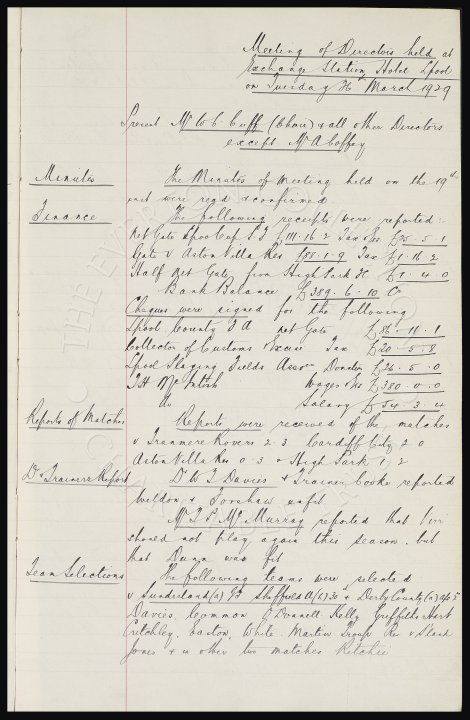 Meeting of Directors held at
Exchange Station Hotel Lpool
on Tuesday 26th March 1929
Present Mr W C Cuff (Chair) & all other Directors
except Mr A Coffey
Minutes
The Minutes of Meeting held on the 19th
inst were read & confirmed
Finance
The following receipts were reported:-
Net Gate Lpool Cup S F £111.16.2 Tax &c £25.5.1
Gate v Aston Villa Res £88.1.9 Tax £1.16.2
Half Net Gate from High Park FC £7.4.0
Bank Balance £389.6.10 Cr
Cheques were signed for the following
Lpool County F A net Gate £86.11.1
Collector of Customs & Excise Tax £20.5.8
Lpool Playing Fields Assn Donation £26.5.0
T H McIntosh Wages &c £380.0.0
Do Salary £54.3.4
Reports of Matches
Reports were received of the matches
v Tranmere Rovers 2-3 Cardiff City 2 0
Aston Villa Res 0.3 & High Park 1.2
Dr & Trainers Report
Dr W J Davies & Trainer Cooke reported
Weldon & Fairhaw unfit
Mr T P McMurray reported that
should not play again this season, but
that Dunn was fit
Team Selections
The following teams were selected
v Sunderland (a) 29 Sheffield U (a) 30 & Derby County (a) Apl 5
Davies, Common O'Donnell Kelly Griffiths Hart
Critchley, Easton, White Martin Troup Res v Stand
Jones & in other two matches Ritchie
THE EVERTON